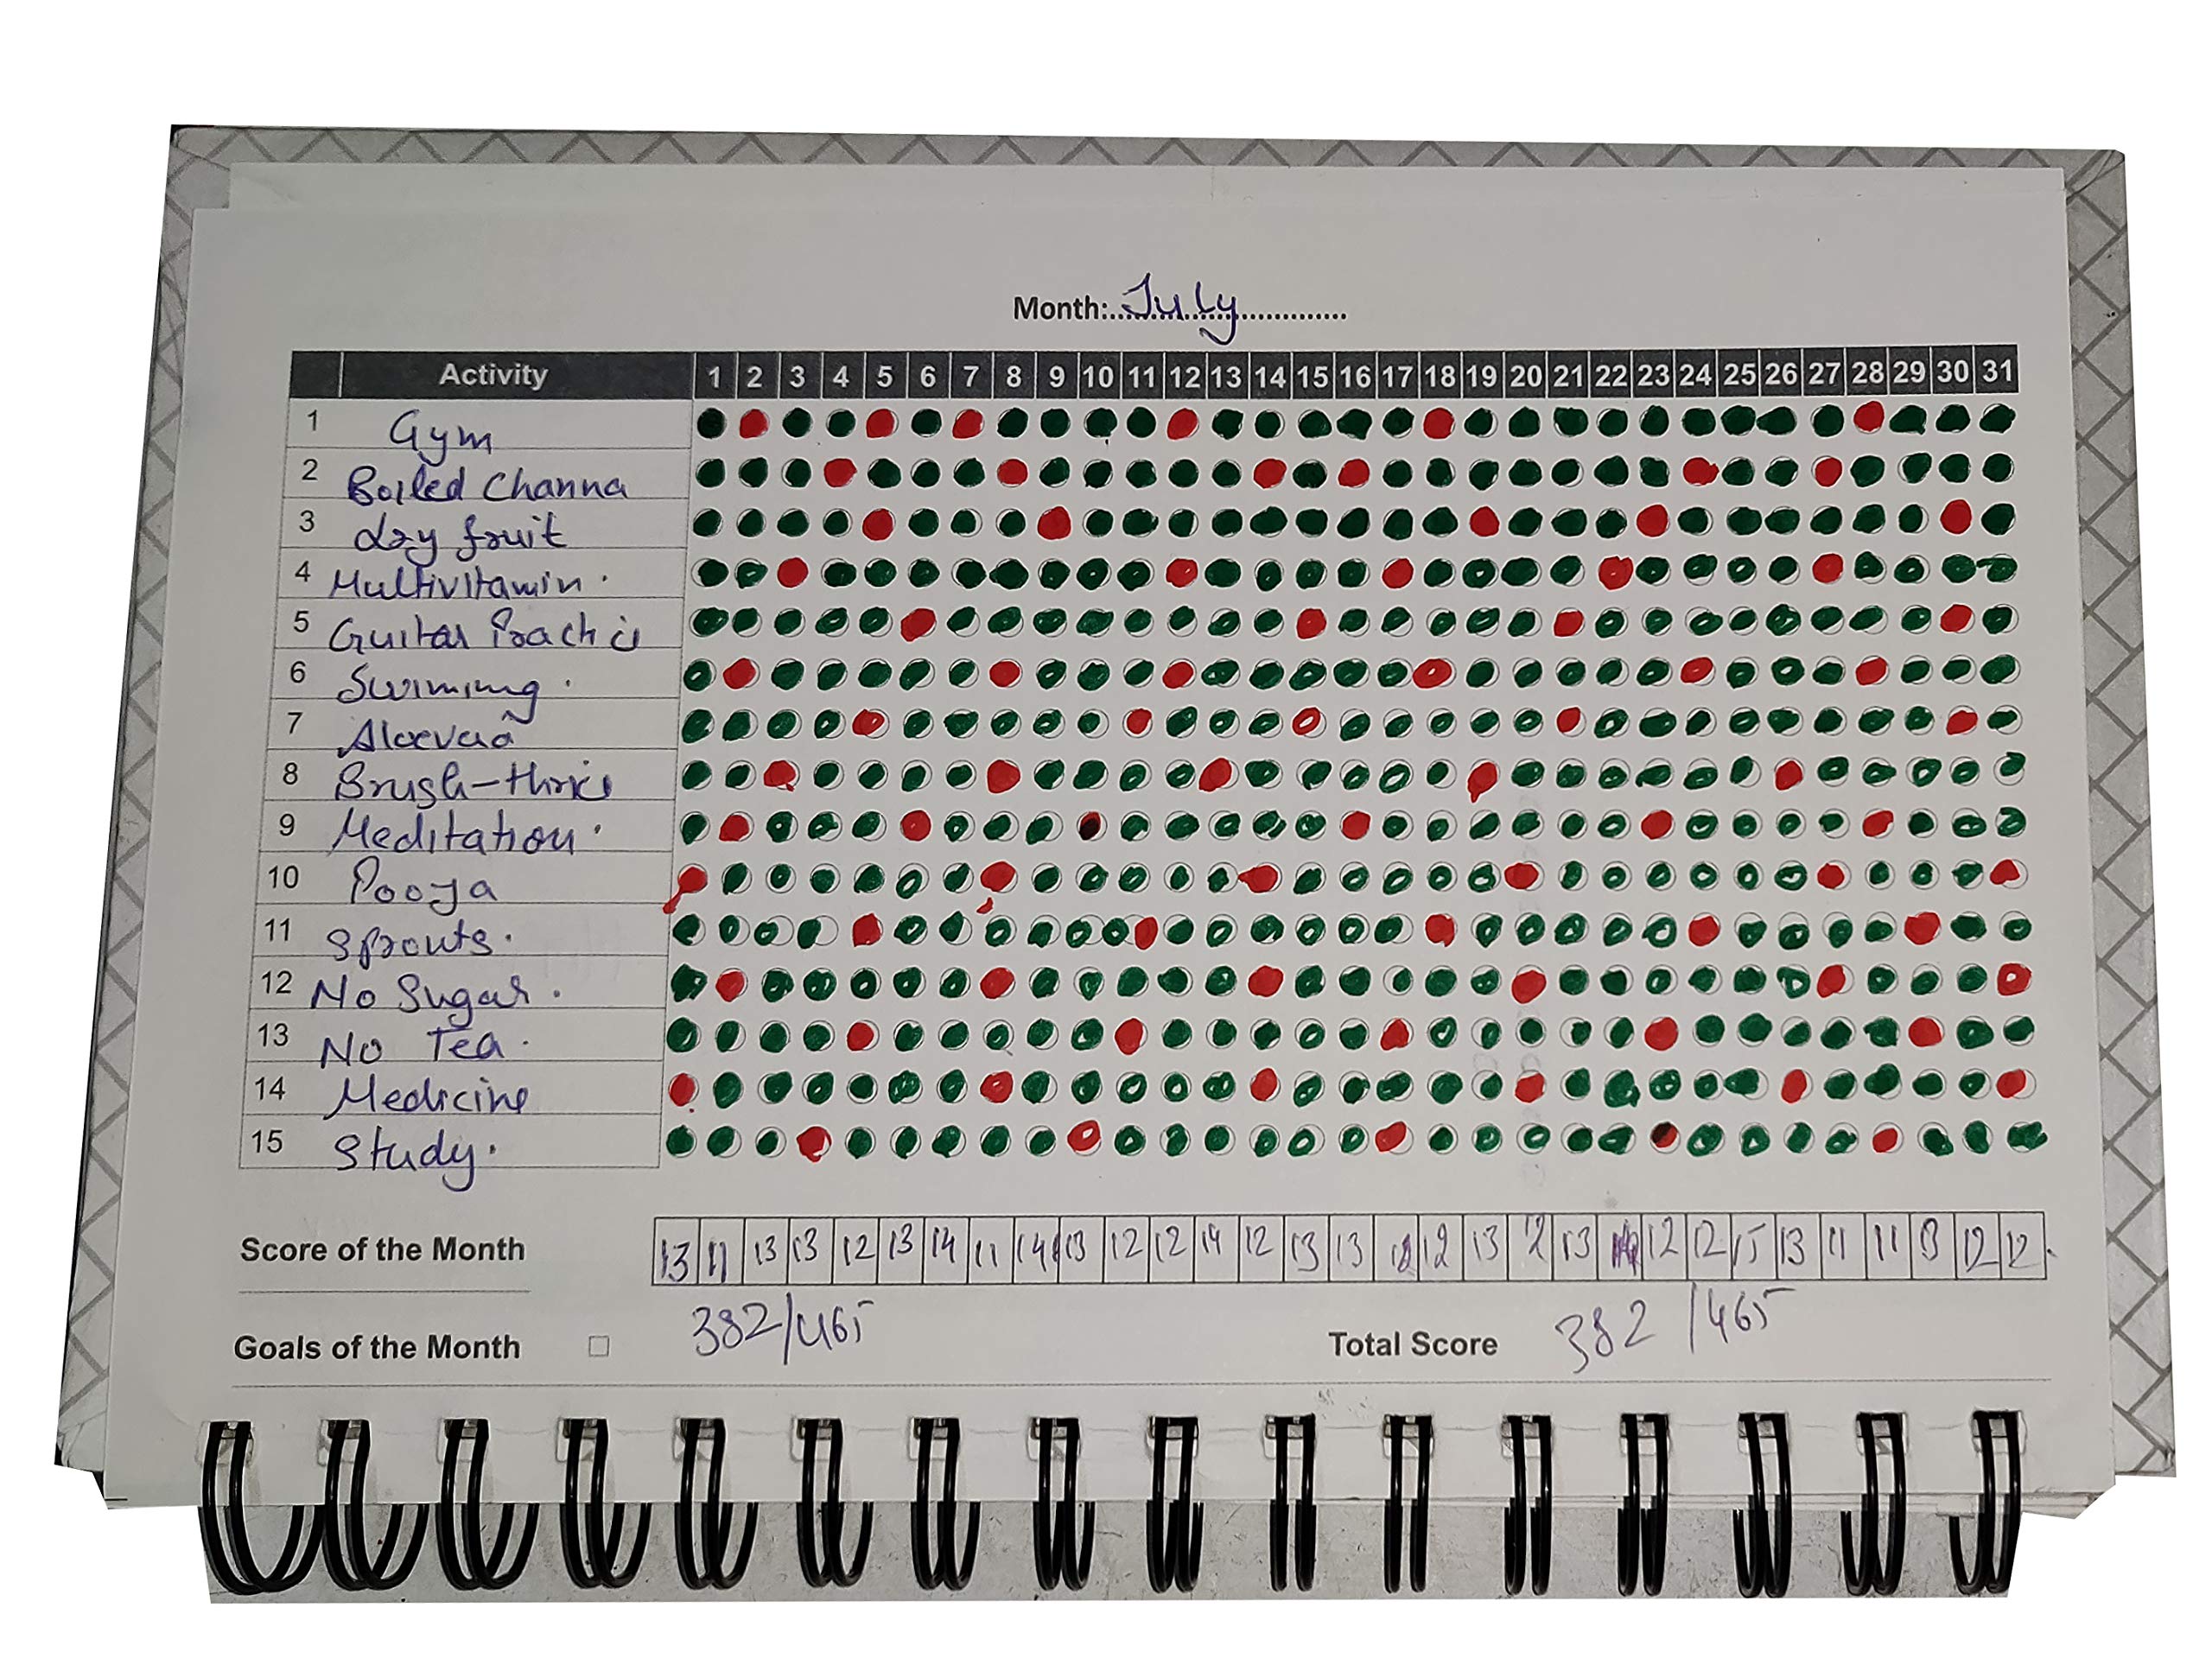 Month:....July....
Activity 1 2 3 4 5 6 7 8 9 10 11 12 13 14 15 16 17 18 19 20 21 22 23 24 25 26 27 28 29 30 31
1 Gym
2 Boiled Channa
3 dry fruit
4 Multivitamin.
5 Guitar
6 Swiming.
7
8 Brush-
9 Meditation.
10 Pooja
11 Sprouts.
12 No Sugar.
13 No Tea.
14 Medicine
15 Study.
Score of the Month 13 11 13 13 12 13 14 11 14 13 12 12 14 12 13 13 12 13 12 13 12 12 15 13 11 11 12 12
Goals of the Month 382/465 Total Score 382/465